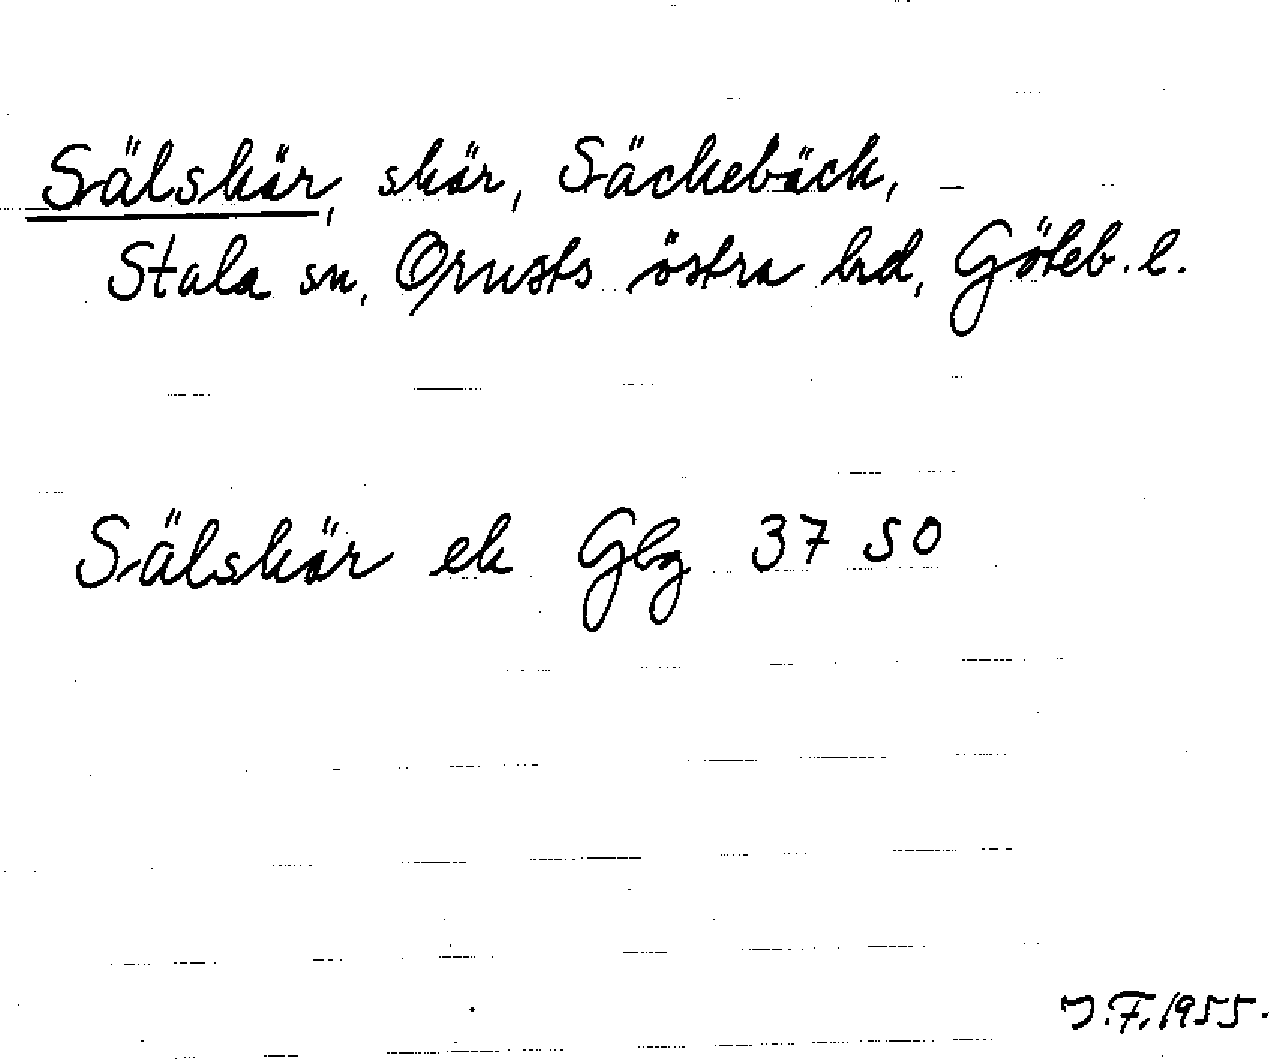 Sälskär, skär, Säckebäck,
Stala sn, Orusts östra hd, Göteb. l.
Sälskär ek Glg 37 50
J.F. 1955.